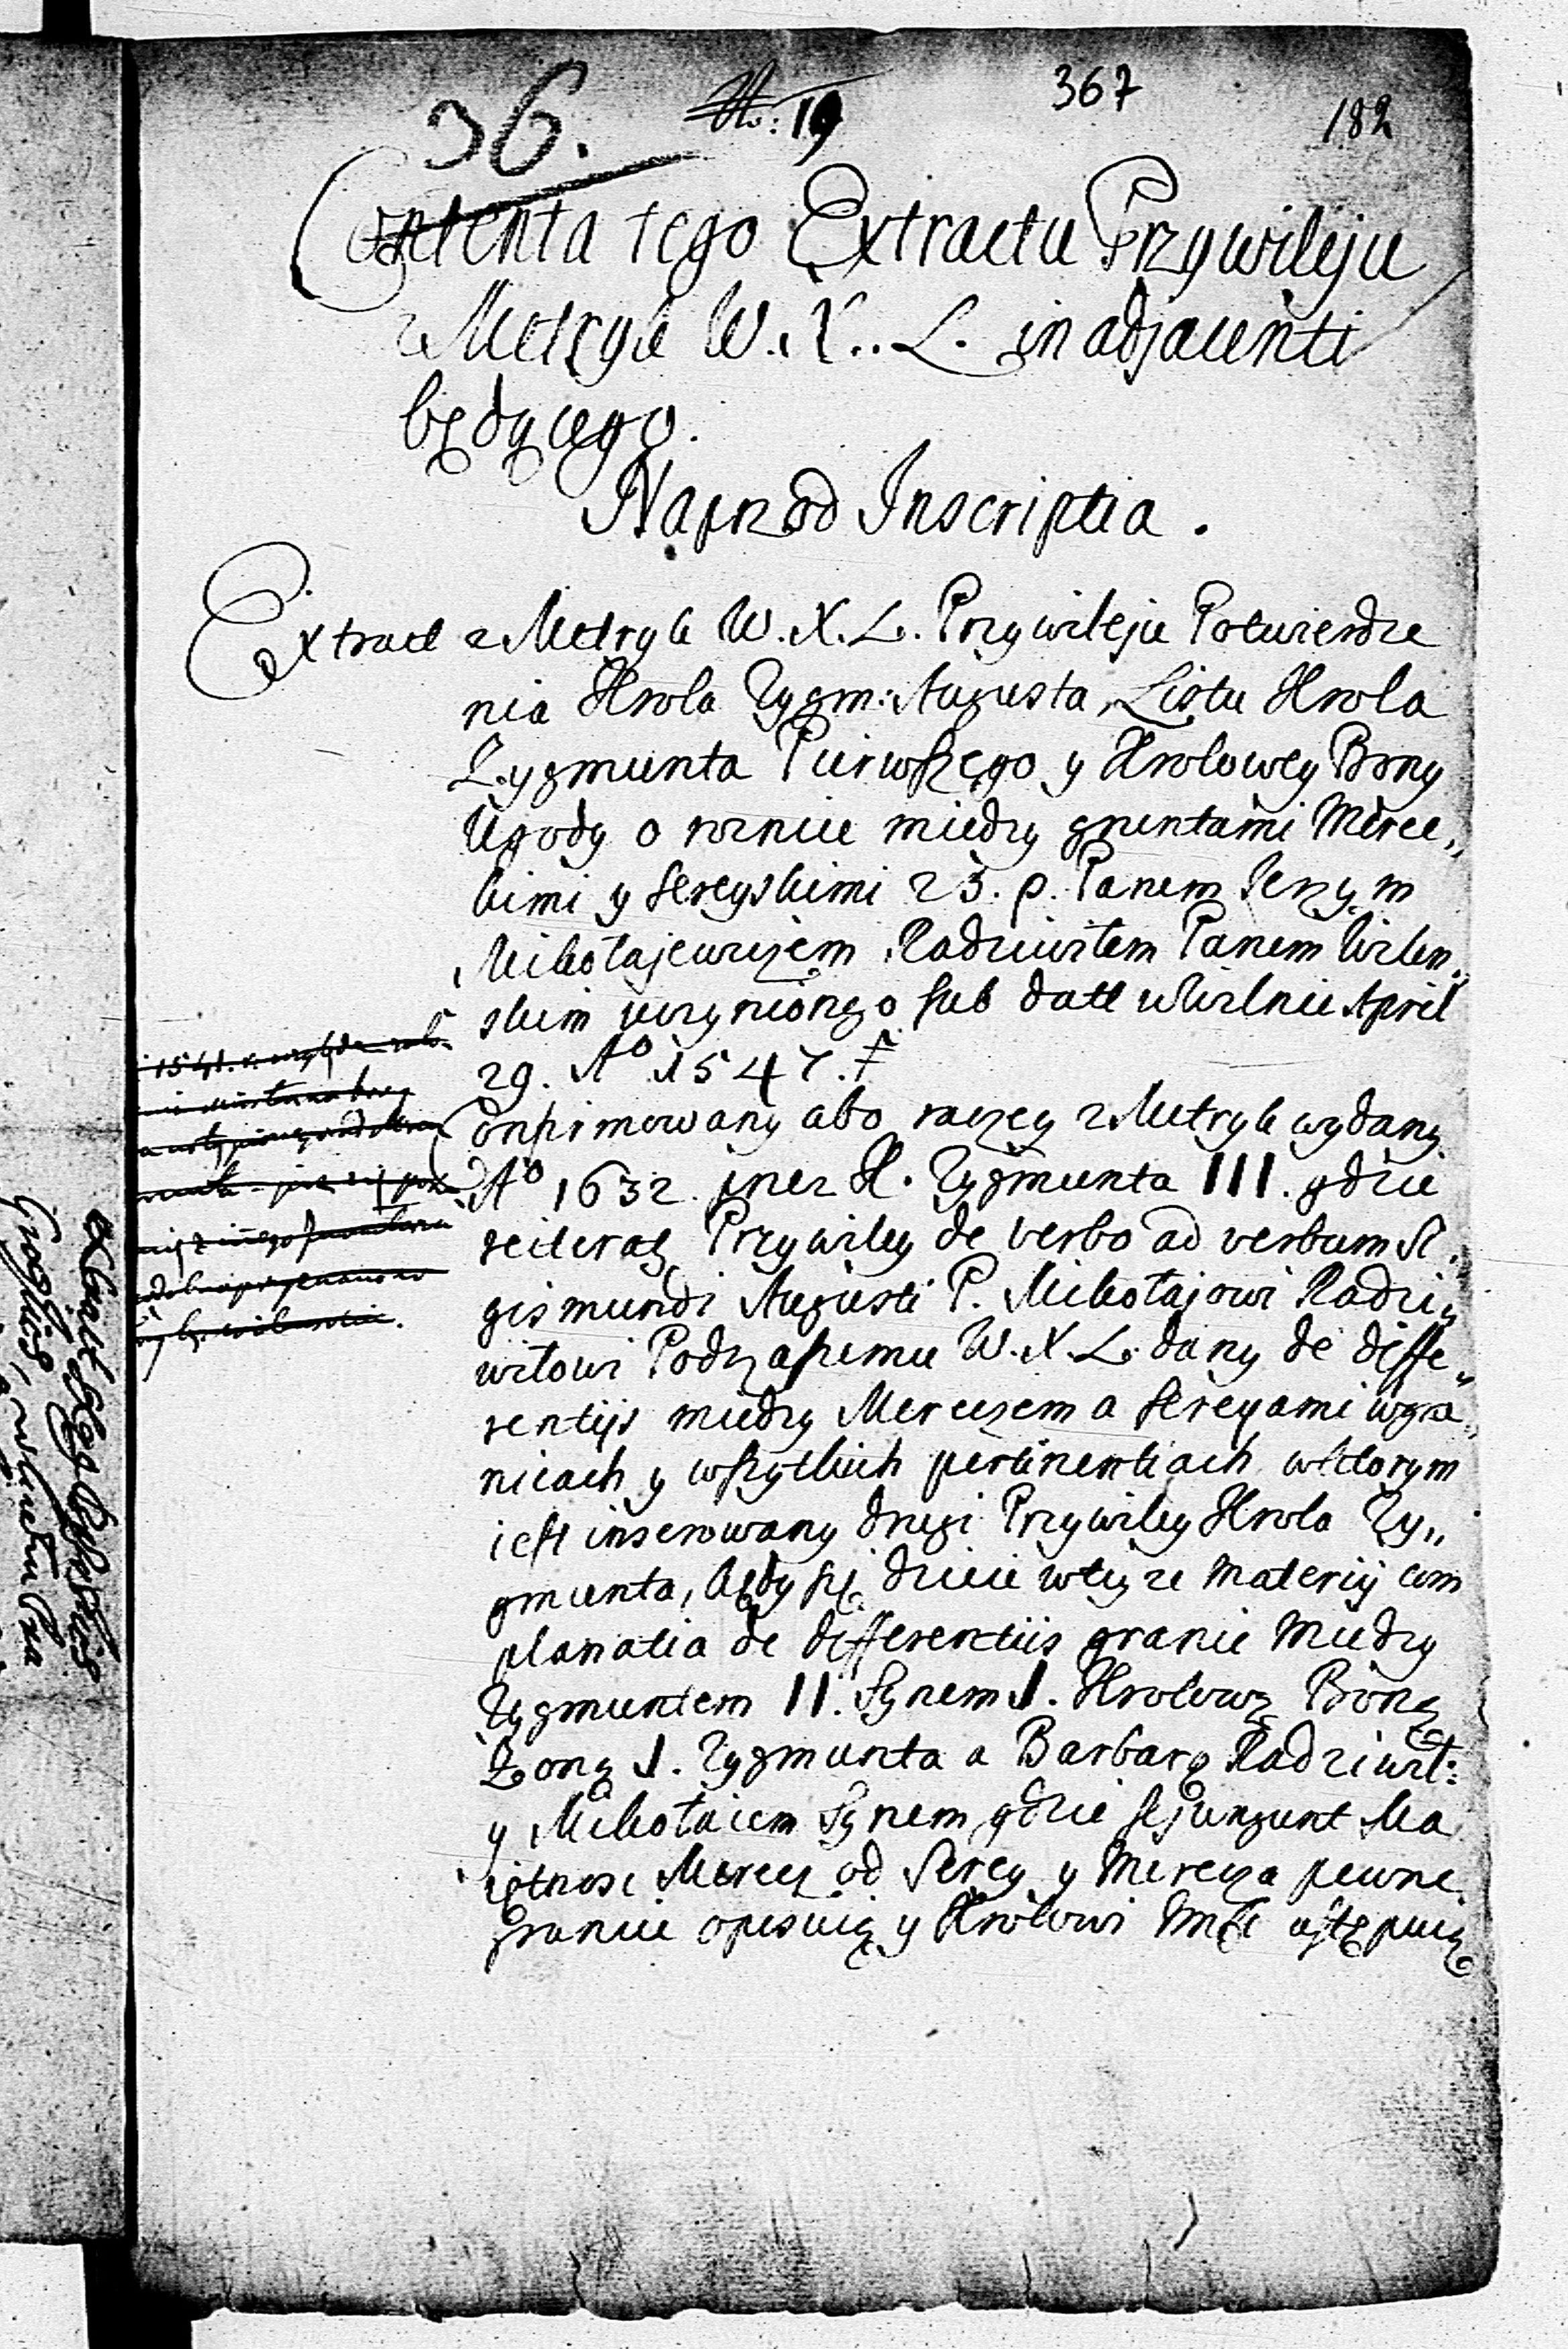 36. No: 19 367 182
Contenta tego Extractu Przywileju
z Metryk W. X. L. in adjacenti
będącego.
Naprzod Inscriptia.
Extract z Metryk W. X. L. Przywileju Potwierdze
nia Krola Zygm: Augusta, Listu Krola
Zygmunta Pierwszego y Krolowey Bony
Ugody o roznice miedzy gruntami Merec„
kimi y Sereyskimi z S. p. Panem Jerzym
Mikołajewiczem Radziwiłem Panem Wilen„
skim uczynioneo sub datt w Wilnie April
29. Ao 1547.
Confirmowany abo raczey z Metryk wydany
Ao 1632. przez K. Zygmunta III. gdzie
reiterat Przywiley de verbo ad verbum Si„
gismundi Augusti P. Mikołajowi Radzi„
wiłowi Podczaszemu W. X. L. dany de diffe„
rentijs miedzy Mereczem a Sereyami w gra„
nicach y wszytkich pertinentiach w ktorym
iest inserowany drugi Przywiley Krola Zy„
gmunta, kędy się dzieie w teyze materiy com
planatia de differentiis granic miedzy
Zygmuntem II. Synem I. Krolową Boną
Zoną I. Zygmunta a Barbarą Radziwił:
y Mikołaiem Synem gdzie sejungunt Ma
iętnosc Merecz od Serey y Merecza pewne
granice opisuią y Krolowi Jmści ustępuią